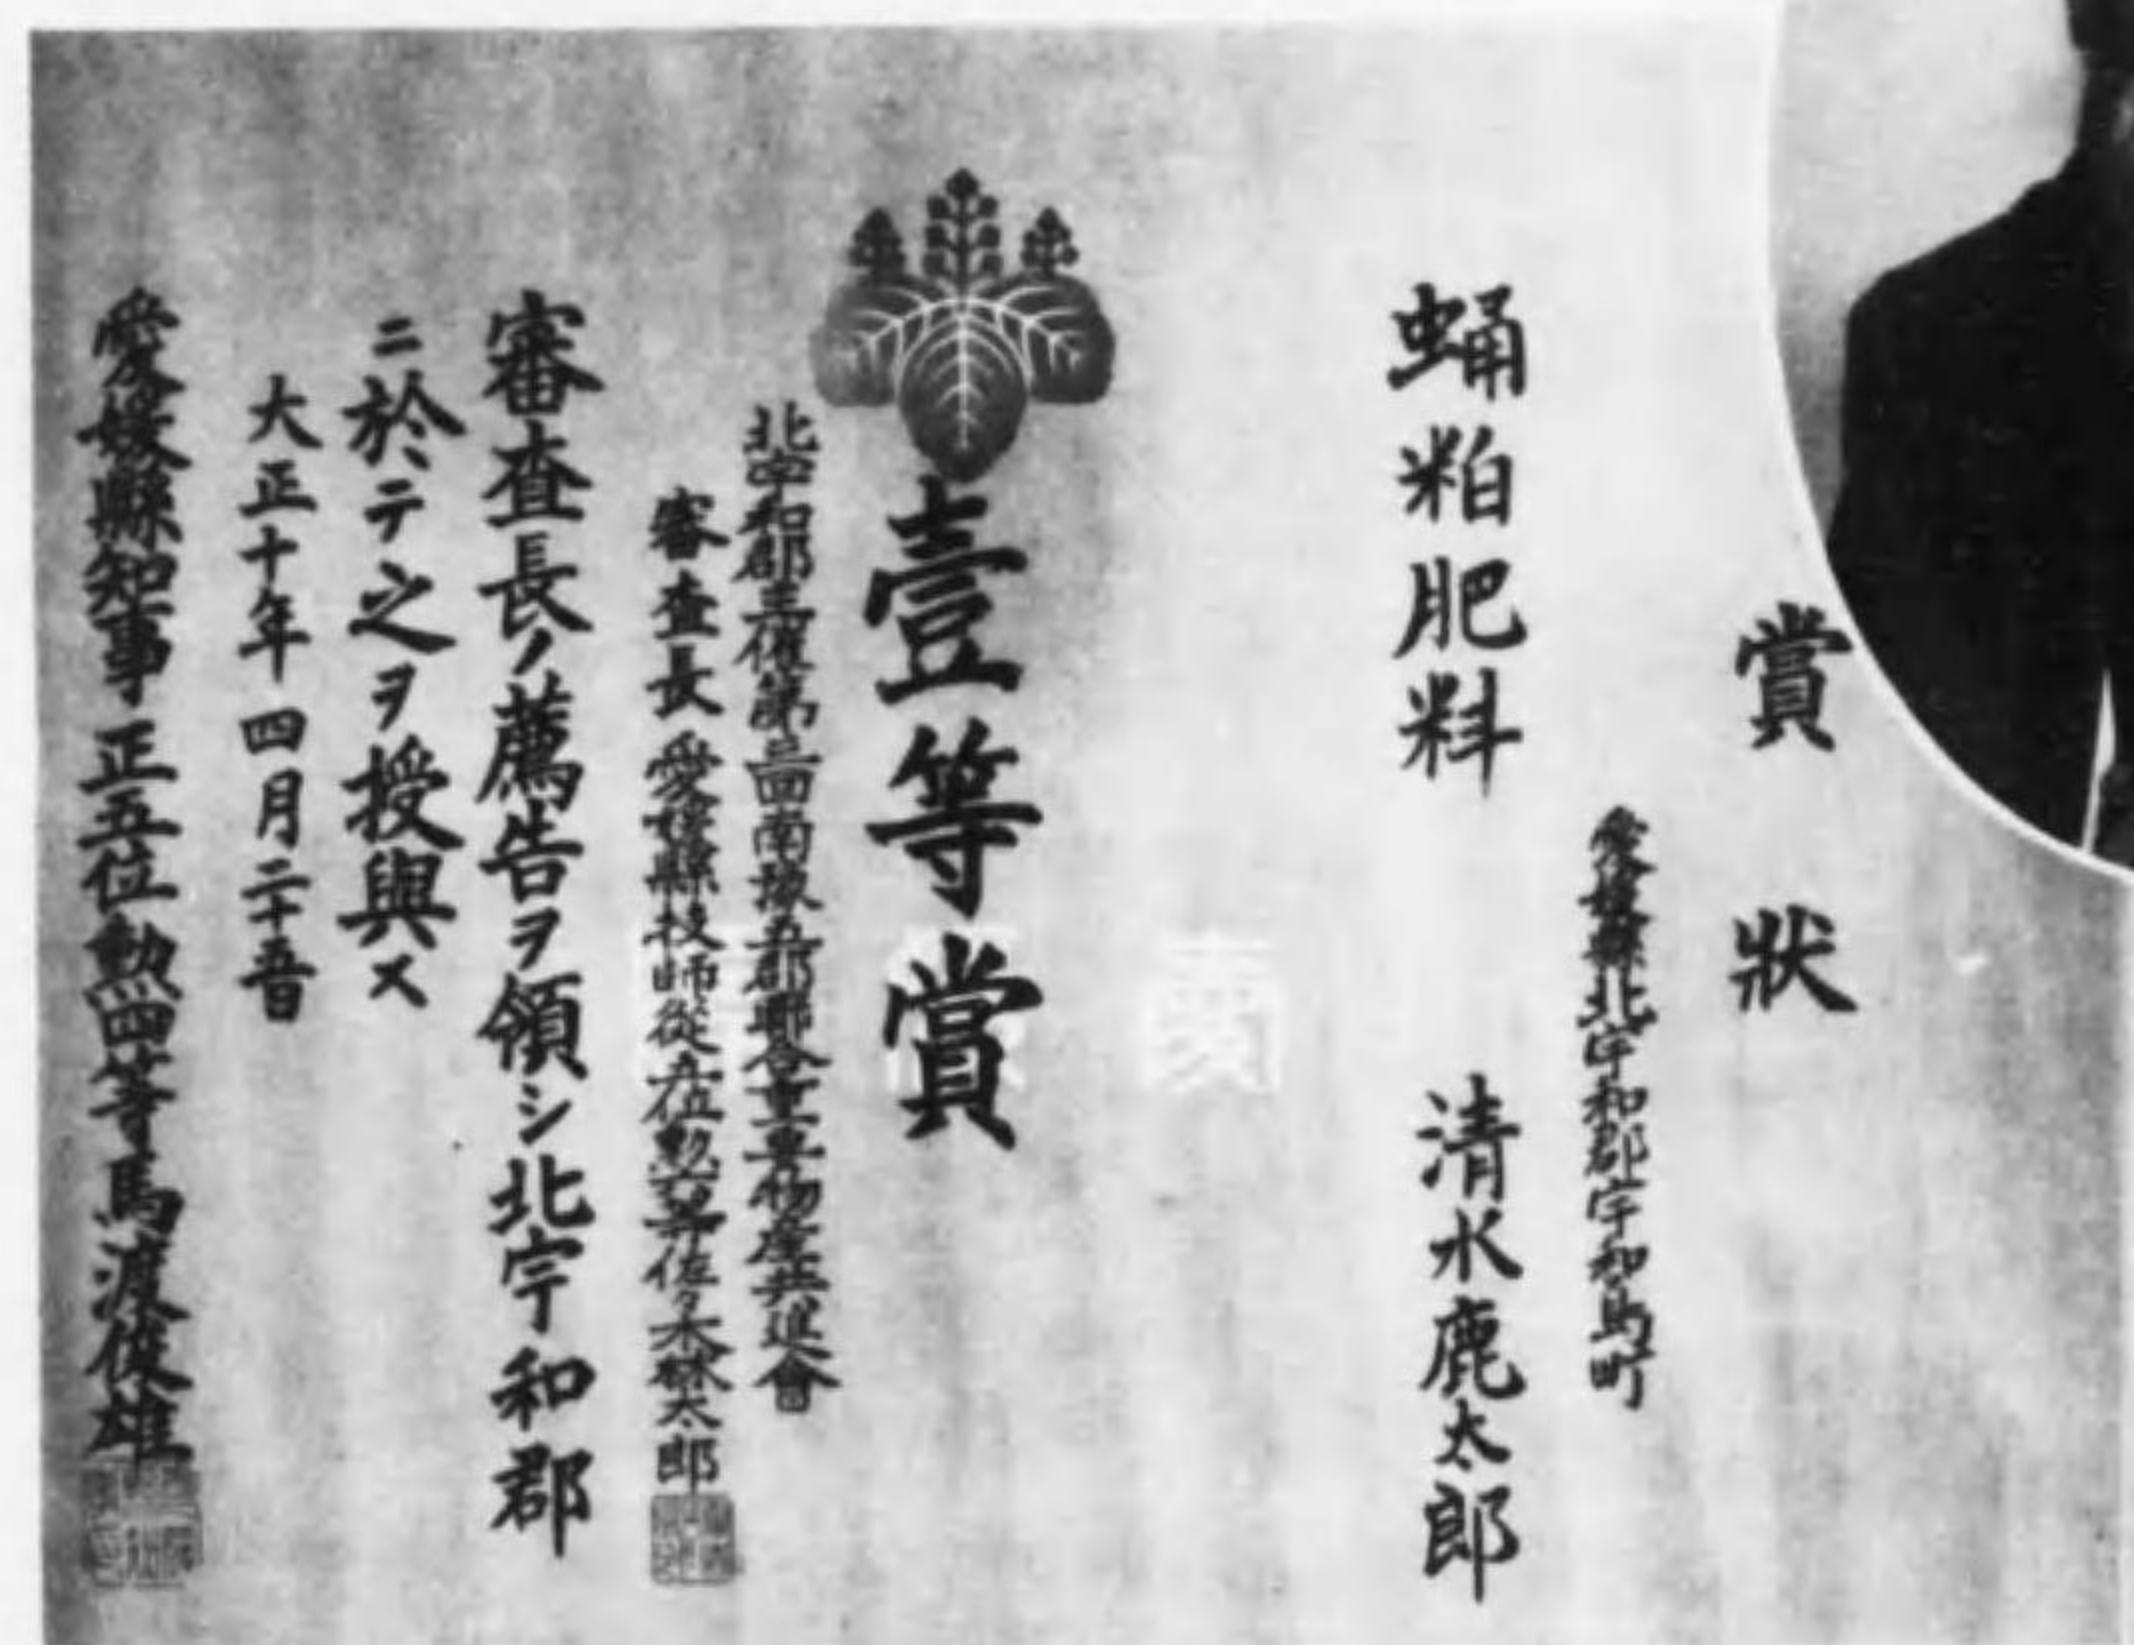 賞狀
愛媛縣北宇和郡宇和島町
蛹粕肥料 清水鹿太郎
壹等賞
北宇和郡主催第三回南豫五郡聯合重要物產共進會
審查長愛媛縣技師從五位勲四等佐々木林太郎
審查長ノ薦告ヲ領シ北宇和郡
ニ於テ之ヲ授與ス
大正十年四月二十五日
愛媛縣知事正五位勲四等馬渡俊雄